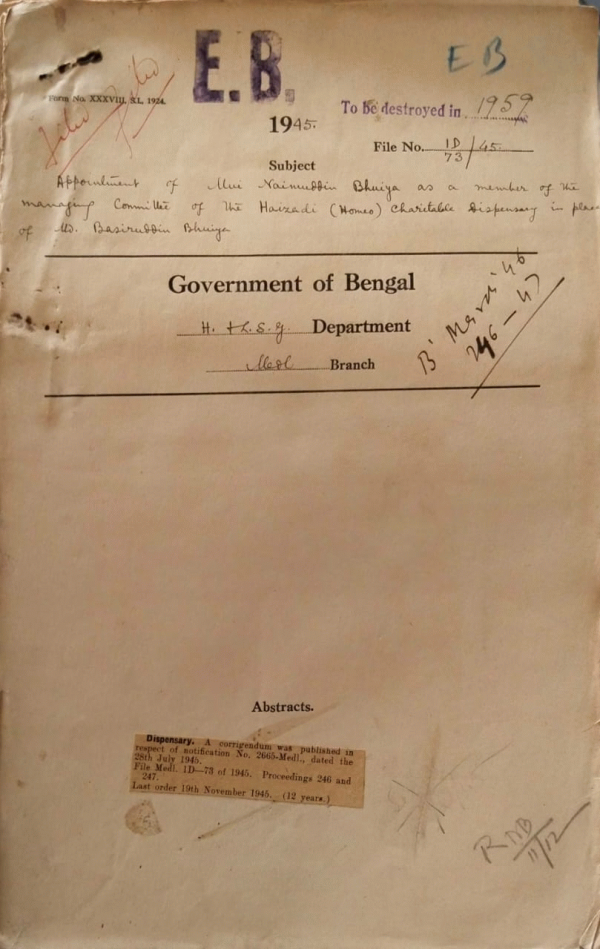 E.B.
E B
Form No. XXXVIII, XL, 1924.
To be destroyed in 1959
1945.
File No. 1D/73/45.
Subject
Appointment of Mvi Naimuddin Bhuiya as a member of the
managing Committee of the Haizadi (Homeo) Charitable Dispensary in place
of Md. Basiruddin Bhuiya
Government of Bengal
H. & L.S.G. Department
Medl Branch
B' March '46
246-47
Abstracts.
Dispensary. A corrigendum was published in
respect of notification No. 2665-Medl., dated the
28th July 1945.
File Medl. 1D—73 of 1945. Proceedings 246 and
247.
Last order 19th November 1945. (12 years.)
11/12